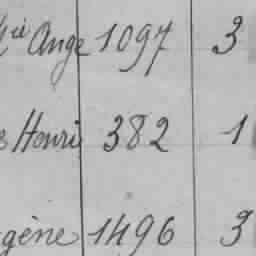 Ange 1097 3
Henri 382 1
gène 1496 3